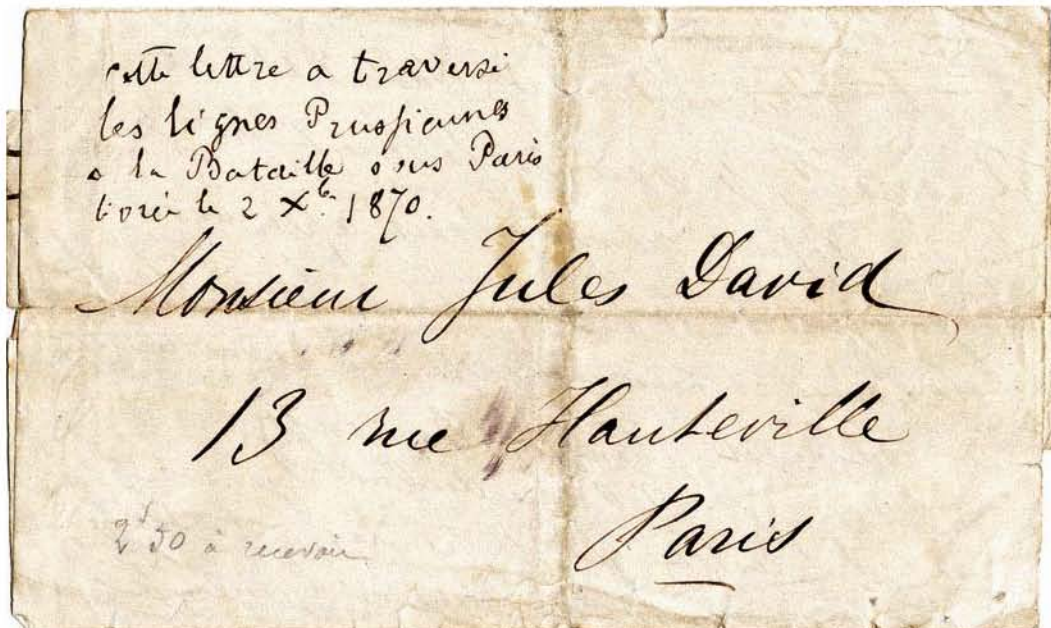 Cette lettre a traversé
les lignes Prussiennes
a la Bataille sous Paris
livrée le 2 Xb. 1870.
Monsieur Jules David
13 rue Hauteville
Paris
2f 50 à recevoir